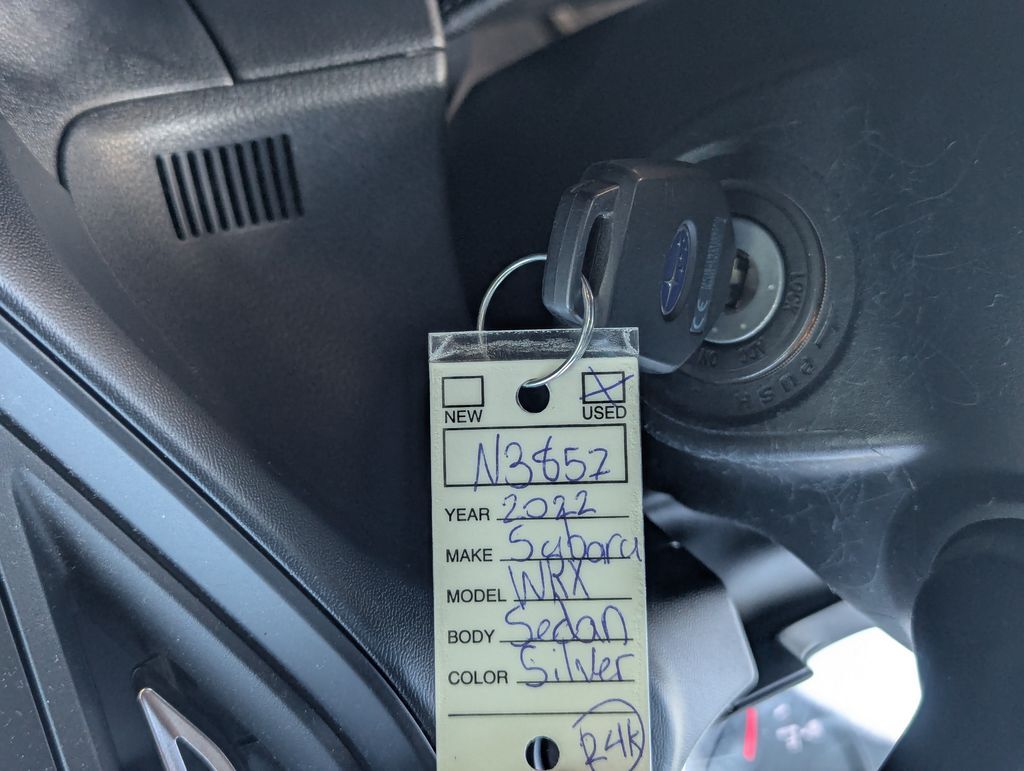 NEW USED
N3657
YEAR 2022
MAKE Subaru
MODEL WRX
BODY Sedan
COLOR Silver
R4K
LOCK
ACC
ON
PUSH